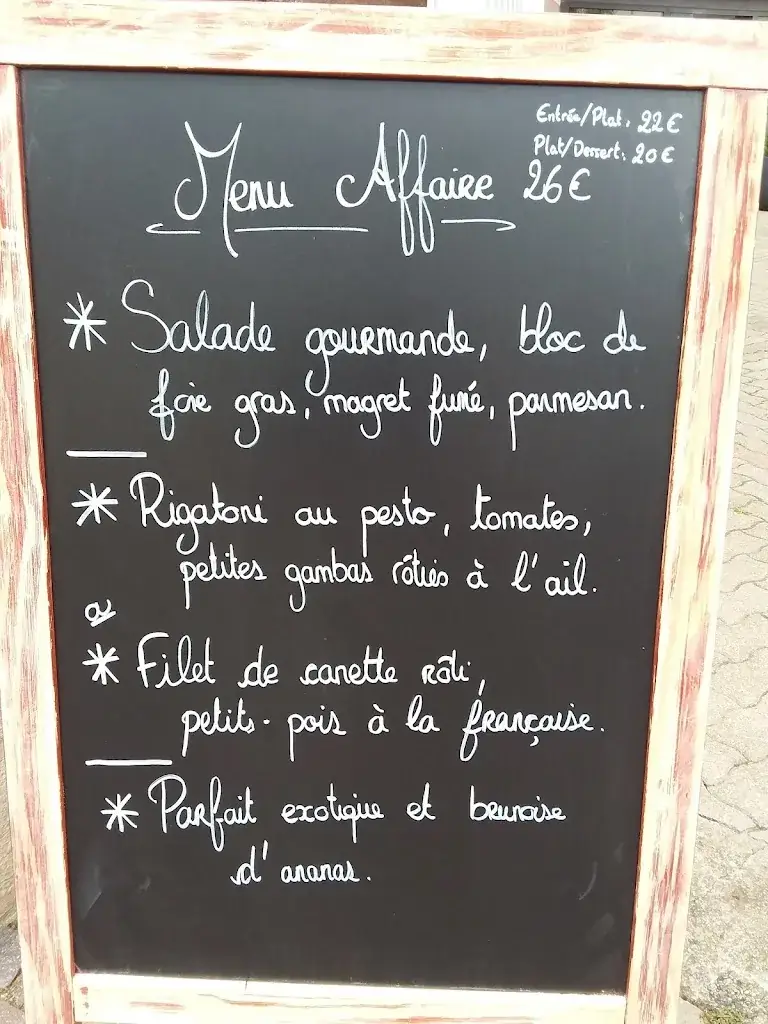 Entrée/Plat: 22€
Plat/Dessert: 20€
Menu Affaire 26€
* Salade gourmande, bloc de
foie gras, magret fumé, parmesan.
* Rigatoni au pesto, tomates,
petites gambas rôties à l'ail.
ou
* Filet de canette rôti,
petits-pois à la française.
* Parfait exotique et brunoise
d'ananas.